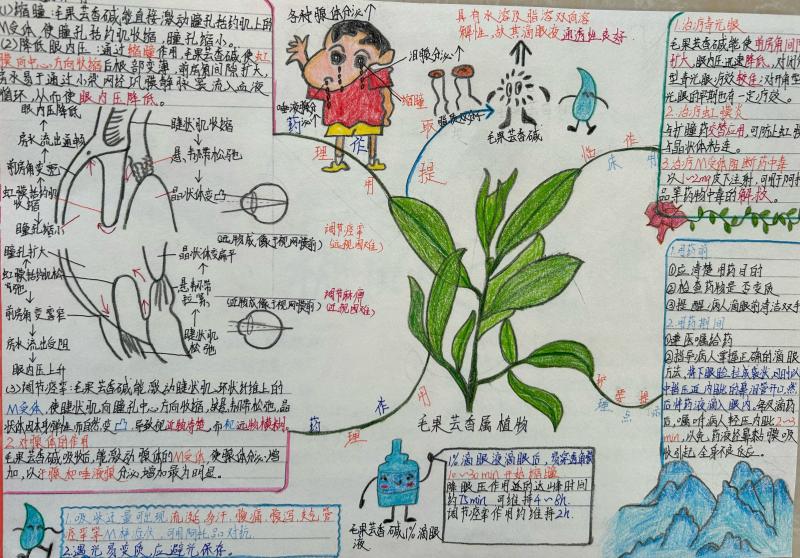 (1)缩瞳:毛果芸香碱能直接激动瞳孔括约肌上的
M受体,使瞳孔括约肌收缩,瞳孔缩小。
(2)降低眼内压:通过缩瞳作用,毛果芸香碱使虹
膜向中心方向收缩后根部变薄,前房角间隙扩大,
房水易于通过小梁网经巩膜静脉窦流入血液
循环,从而使眼内压降低。
眼内压降低
房水流出通畅
前房角变宽
虹膜括约肌
收缩
瞳孔缩小
睫状肌收缩
悬韧带松弛
晶状体变凸
(近物成像于视网膜前)
调节痉挛
(远视困难)
瞳孔扩大
虹膜括约肌松
弛
前房角变窄
房水流出受阻
眼内压上升
晶状体变扁平
悬韧带
拉紧
睫状肌
松弛
调节麻痹
(近视困难)
(3)调节痉挛:毛果芸香碱能激动睫状肌环状纤维上的
M受体,使睫状肌向瞳孔中心方向收缩,故悬韧带松弛,晶
状体因本身弹性而自然变凸,导致视近物清楚,而视远物模糊。
2.对腺体的作用
毛果芸香碱吸收后,能激动腺体的M受体,使腺体分泌增
加,以汗腺和唾液腺分泌增加最为明显。
1.吸收过量可出现流涎、多汗、腹痛、腹泻、支气管
痉挛等M样症状,可用阿托品对抗。
2.遇光易变质,应避光保存。
各种腺体分泌↑
泪腺分泌↑
缩瞳
唾液腺分
泌↑
药 理 作 用
具有水溶及脂溶双向溶
解性,故其滴眼液通透性良好
提 取
毛果芸香碱
临 床 作 用
毛果芸香属植物
药 理 作 用
护 理 要 点 提
毛果芸香碱1%滴眼
液
1%滴眼液滴眼后,易穿透角膜
10~30min开始缩瞳
降眼压作用达的达峰时间
约75min可维持4~8h.
调节痉挛作用约维持2h.
1.治疗青光眼
毛果芸香碱能使前房角间隙
扩大,眼内压迅速降低,对闭角
型青光眼疗效较佳;对开角型青
光眼的早期也有一定疗效。
2.治疗虹膜炎
与扩瞳药交替应用,可防止虹膜
与晶状体粘连。
3.治疗M受体阻断药中毒
以1~2mg皮下注射,可用于阿托
品等药物中毒的解救。
1.用药前
①应清楚用药目的
②检查药物是否变质
③提醒病人滴眼前清洁双手
2.用药期间
①遵医嘱给药
②指导病人掌握正确的滴眼
方法,将下眼睑拉成袋状,同时以
中指压迫内眦的鼻泪管开口,然
后将药液滴入眼内,每次滴药
后,嘱咐病人轻压内眦2~3
min,以免药液经鼻粘膜吸
收引起全身不良反应。